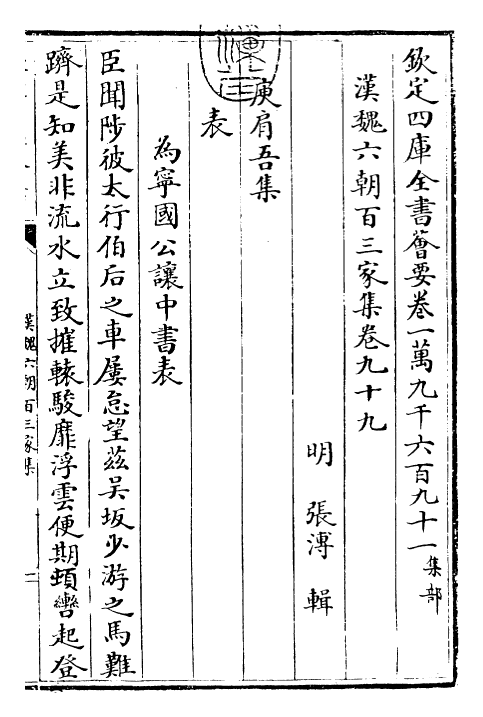 欽定四庫全書薈要卷一萬九千六百九十一集部
漢魏六朝百三家集卷九十九
明張溥輯
庾肩吾集
表
為寧國公讓中書表
臣聞陟彼太行伯后之車屢怠望茲吴坂少游之馬難
躋是知美非流水立致摧轅駿靡浮雲便期頓轡起登
漢魏六朝百三家集